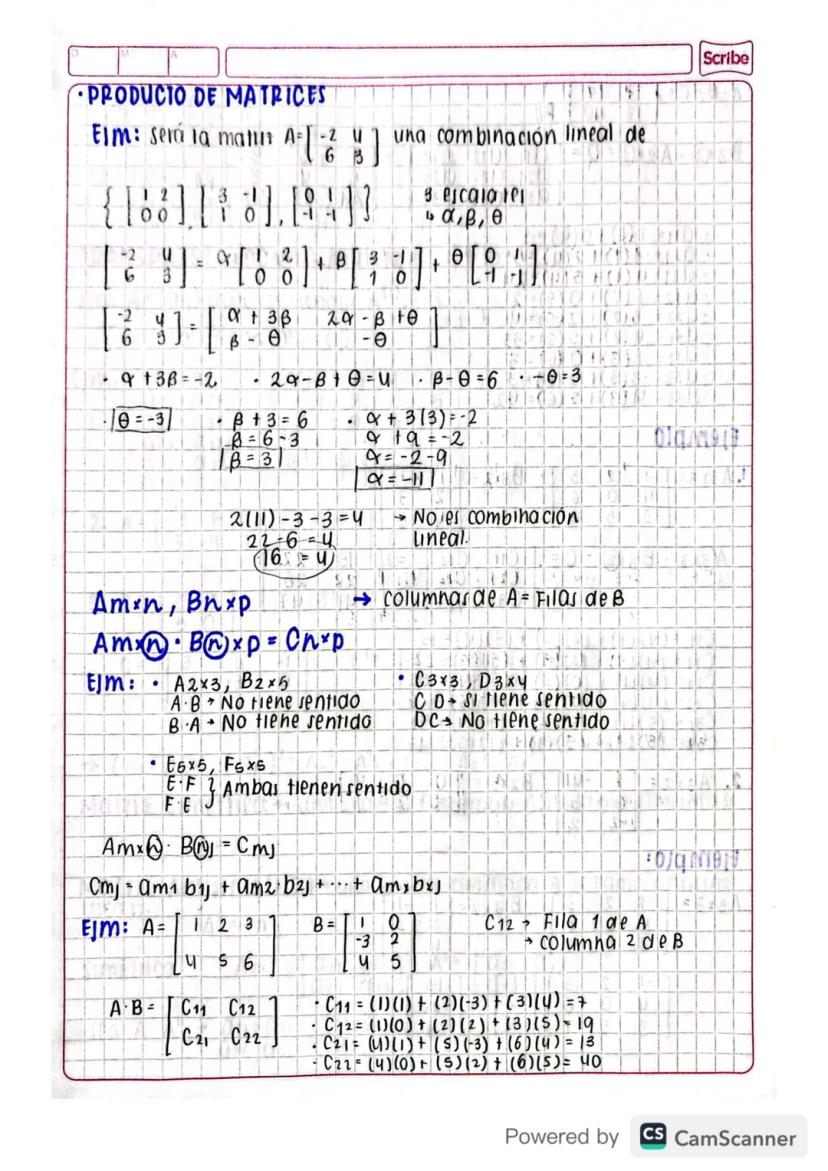 D M A
Scribe
· PRODUCTO DE MATRICES
EJm: será la matriz A=[ -2 4 ] una combinación lineal de
6 3
{ [ 1 2 ], [ 3 -1 ], [ 0 1 ] } 3 escalares
0 0 1 0 -1 -1 ↳ α, β, θ
[ -2 4 ] = α [ 1 2 ] + β [ 3 -1 ] + θ [ 0 1 ]
6 3 0 0 1 0 -1 -1
[ -2 4 ] = [ α + 3β 2α - β + θ ]
6 3 β - θ -θ
· α + 3β = -2 · 2α - β + θ = 4 · β - θ = 6 · -θ = 3
· θ = -3 · β + 3 = 6 · α + 3(3) = -2
β = 6 - 3 α + 9 = -2
β = 3 α = -2 - 9
α = -11
2(11) - 3 - 3 = 4 → No es combinación
22 - 6 = 4 lineal.
16 = 4
Am×n, Bn×p → columnas de A = Filas de B
Am×n · Bn×p = Cn×p
EJm: · A2×3, B2×5 · C3×3, D3×4
A·B → No tiene sentido C D → Si tiene sentido
B·A → No tiene sentido DC → No tiene sentido
· E5×5, F5×5
E·F } Ambas tienen sentido
F·E
Am×n · Bnj = Cmj
Cmj = am1 b1j + am2 b2j + ... + amxbxj
EJm: A = [ 1 2 3 ] B = [ 1 0 ] C12 → Fila 1 de A
-3 2 → columna 2 de B
4 5 6 4 5
A·B = [ C11 C12 ] · C11 = (1)(1) + (2)(-3) + (3)(4) = 7
· C12 = (1)(0) + (2)(2) + (3)(5) = 19
C21 C22 · C21 = (4)(1) + (5)(-3) + (6)(4) = 13
· C22 = (4)(0) + (5)(2) + (6)(5) = 40
Powered by CS CamScanner